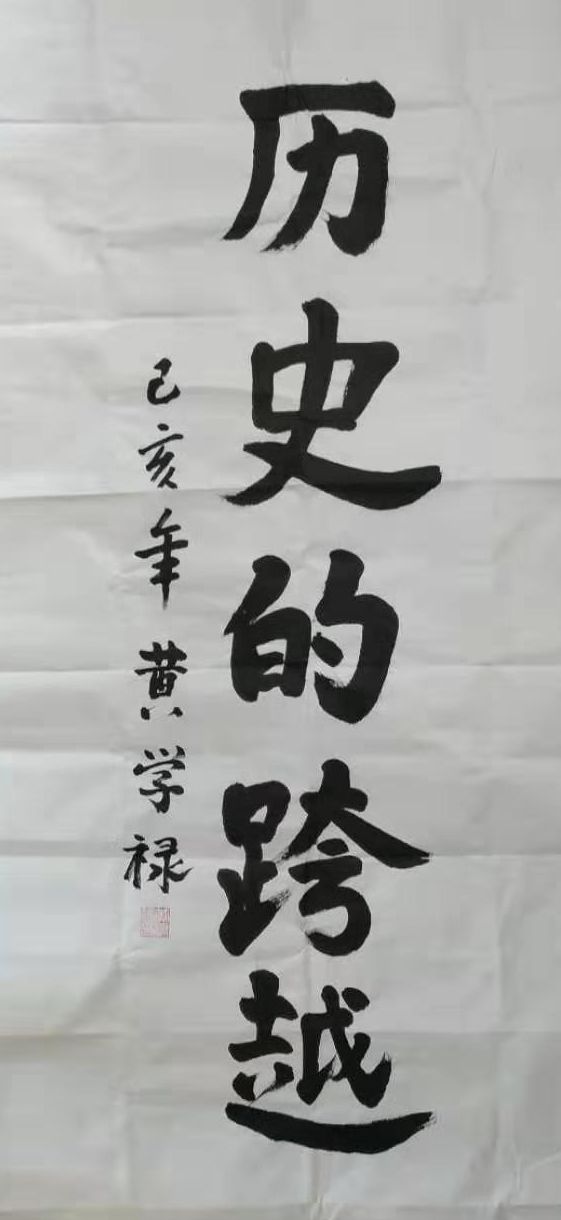 历史的跨越
己亥年 黄学禄